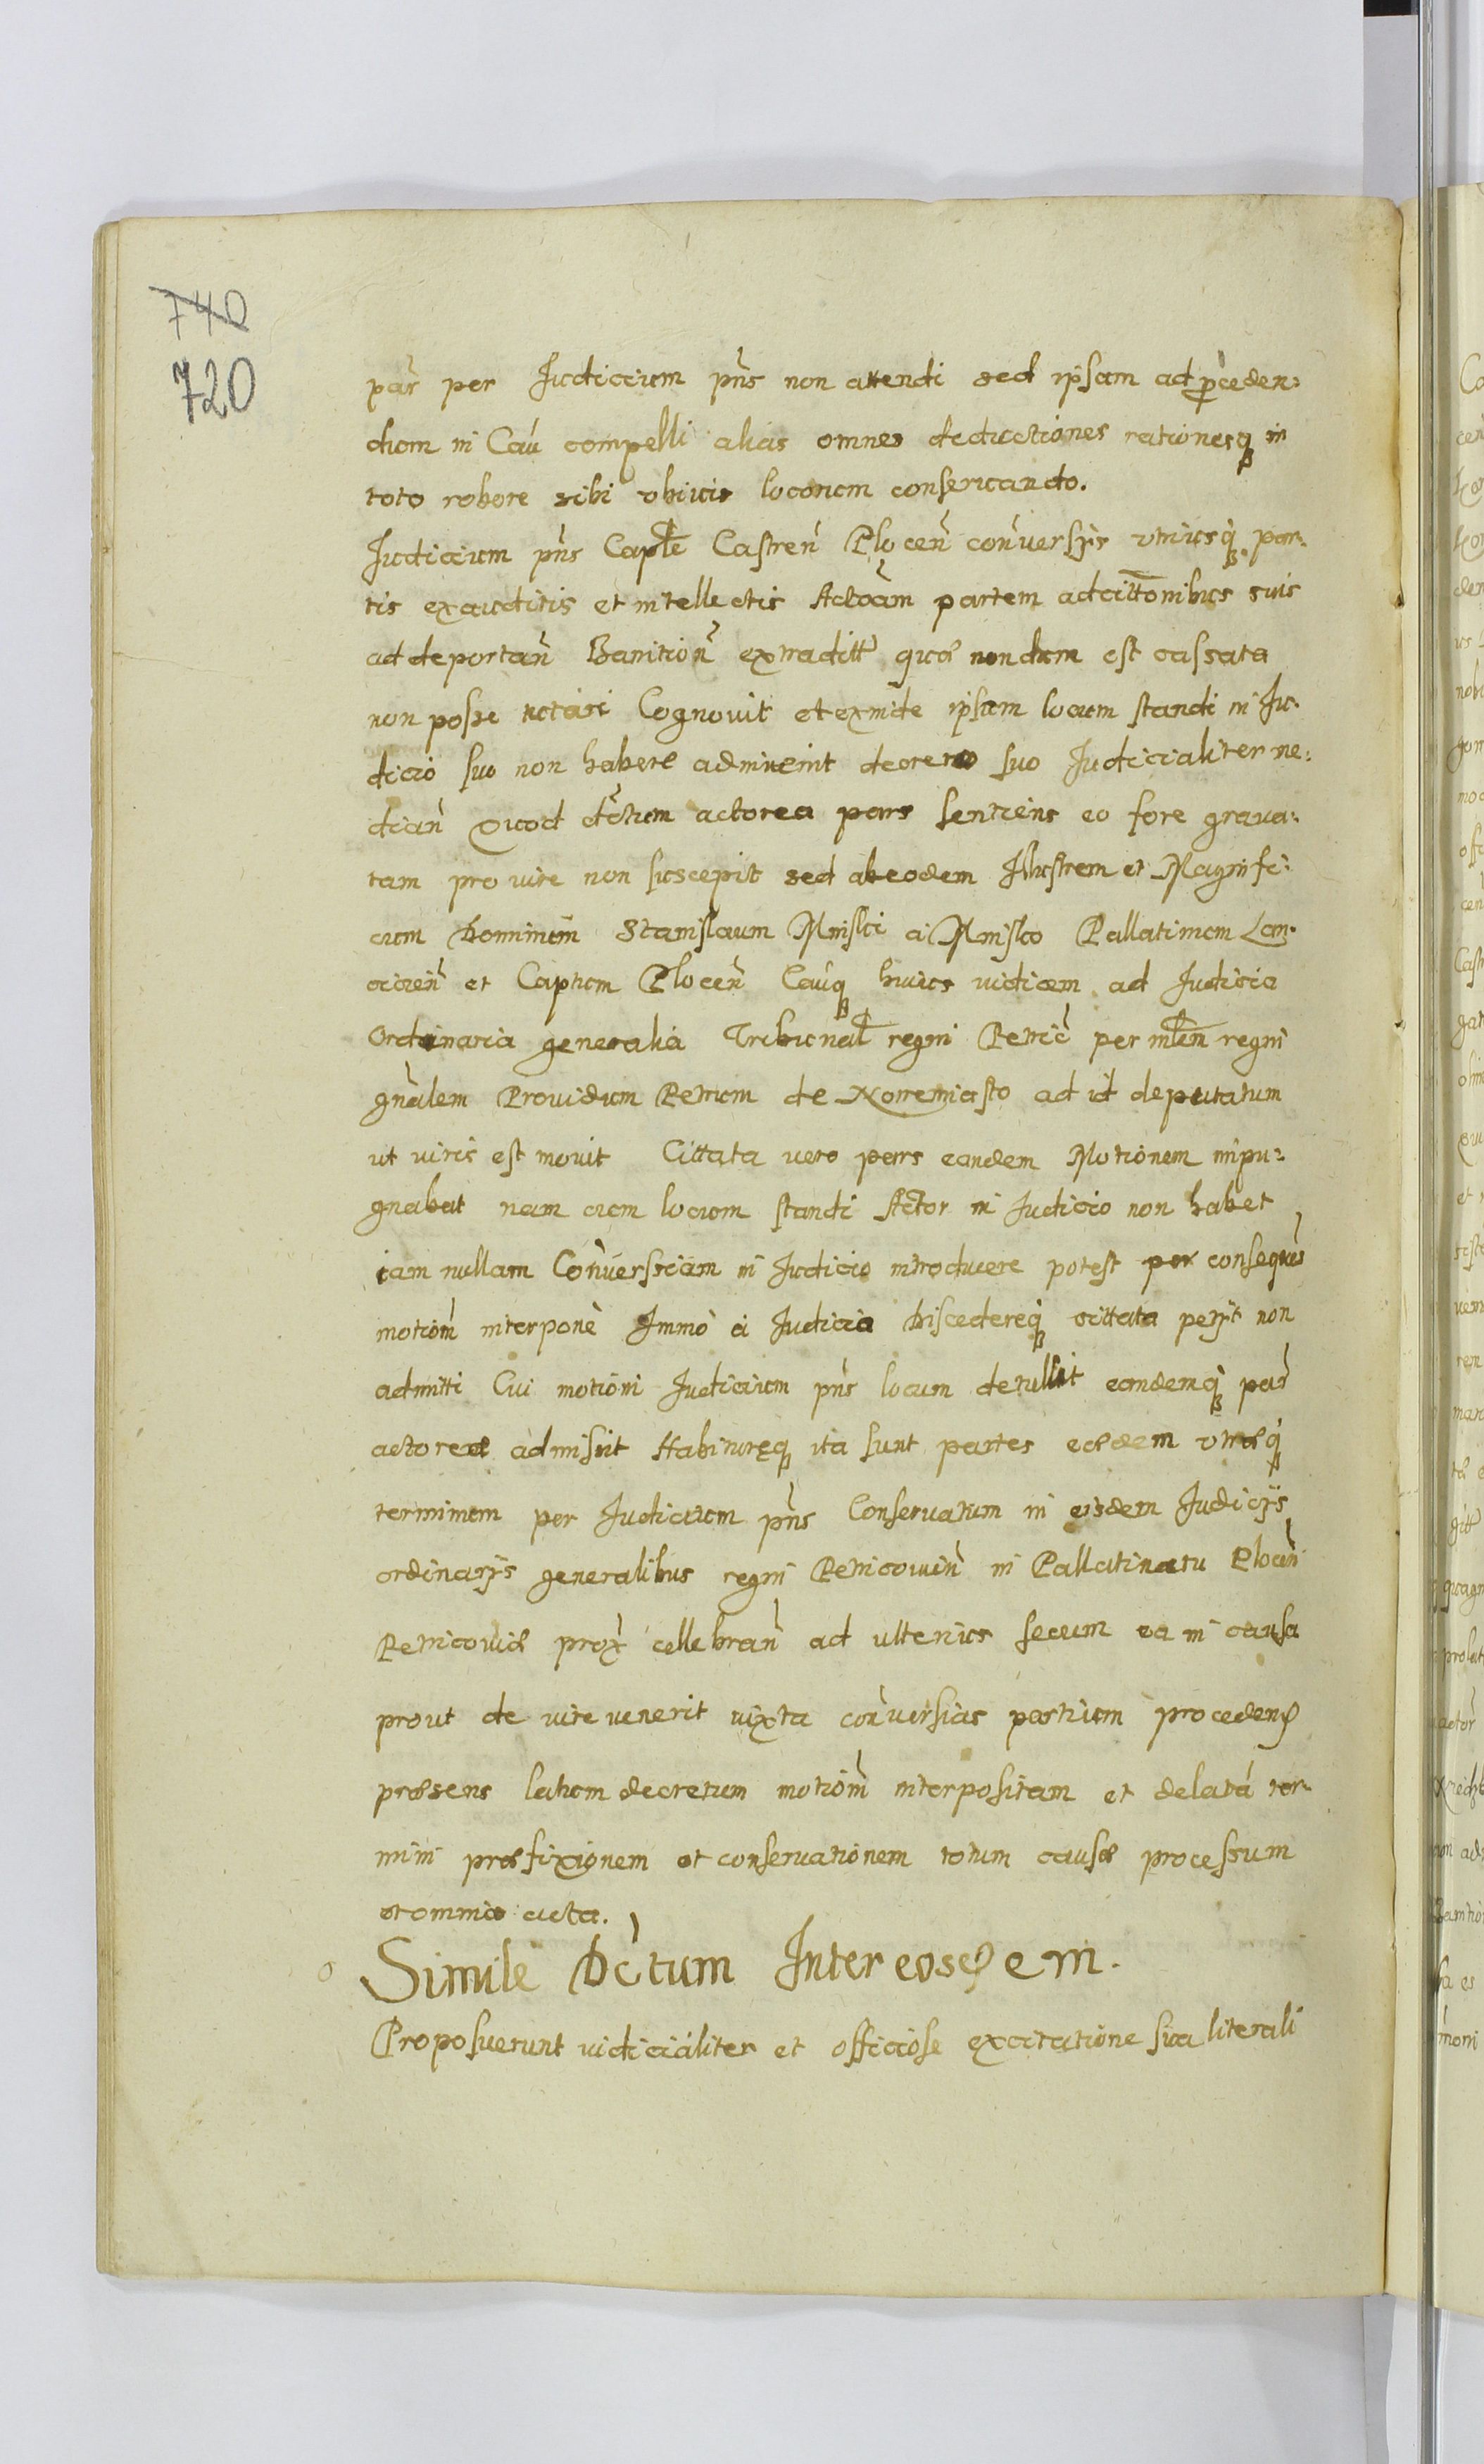 740
720
par̃ per Judicium pñs non attendi sed ipsam ad proceden:
dum in Cau͂ compelli alias omnes deductiones rationesq in
toto robore sibi ubiuis locorum conseruando.
Judicium pñs Caple Castreñ Ploceñ coñuersijs utriusq par:
tis exauditis et intellectis Actoãm partem adcittõnibus suis
ad deportañ Banitioñ extraditt quæ nondum est cassata
non posse Cognouit et exinde ipsum locum standi in Ju:
dicio suo non habere adinuenit decreto suo Judicialiter me:
diañ Quod dctum actorea pars sentiens eo fore graua:
tam pro iure non suscepit sed ab eodem Illustrem et Magnifi:
cum Dominum Stanislaum Minski a Minsko Pallatinum Lan:
cicieñ et Captum Ploceñ Cauq huius iudicem ad Judicia
Ordinaria generalia Tribunal regni Petric per mlem regni
gnãlem Prouidum Petrum de Noremiasto ad id deputatum
ut iuris est mouit Cittata uero pars eandem Motionem impu:
gnabat nam cum locum standi Actor in Judicio non habet
iam nullam Coñuersiam in Judicio introducere potest per consequẽs
motioñ interponè Immò à Judicio discedereq cittata petijt non
admitti Cui motioni Judicium pñs locum detullit eandemq par̃
actoreæ admisit Habituræq ita sunt partes eædem utræq
terminum per Judicium pñs Conseruatum in eisdem Judicijs
ordinarijs generalibus regni Petricouieñ in Pallatinatu Ploceñ
Petricouiæ prox̃ cellebrañ ad ulterius secum ea in causa
prout de iure uenerit iuxta coñuersias partium procedend
præsens latum decretum motioñ interpositam et delatã ter:
mini præfixionem et conseruationem totum causæ processum
et omnia acta.
Simile Dctum Inter eosdem.
Proposuerunt iudicialiter et officiose excitatione sua literali